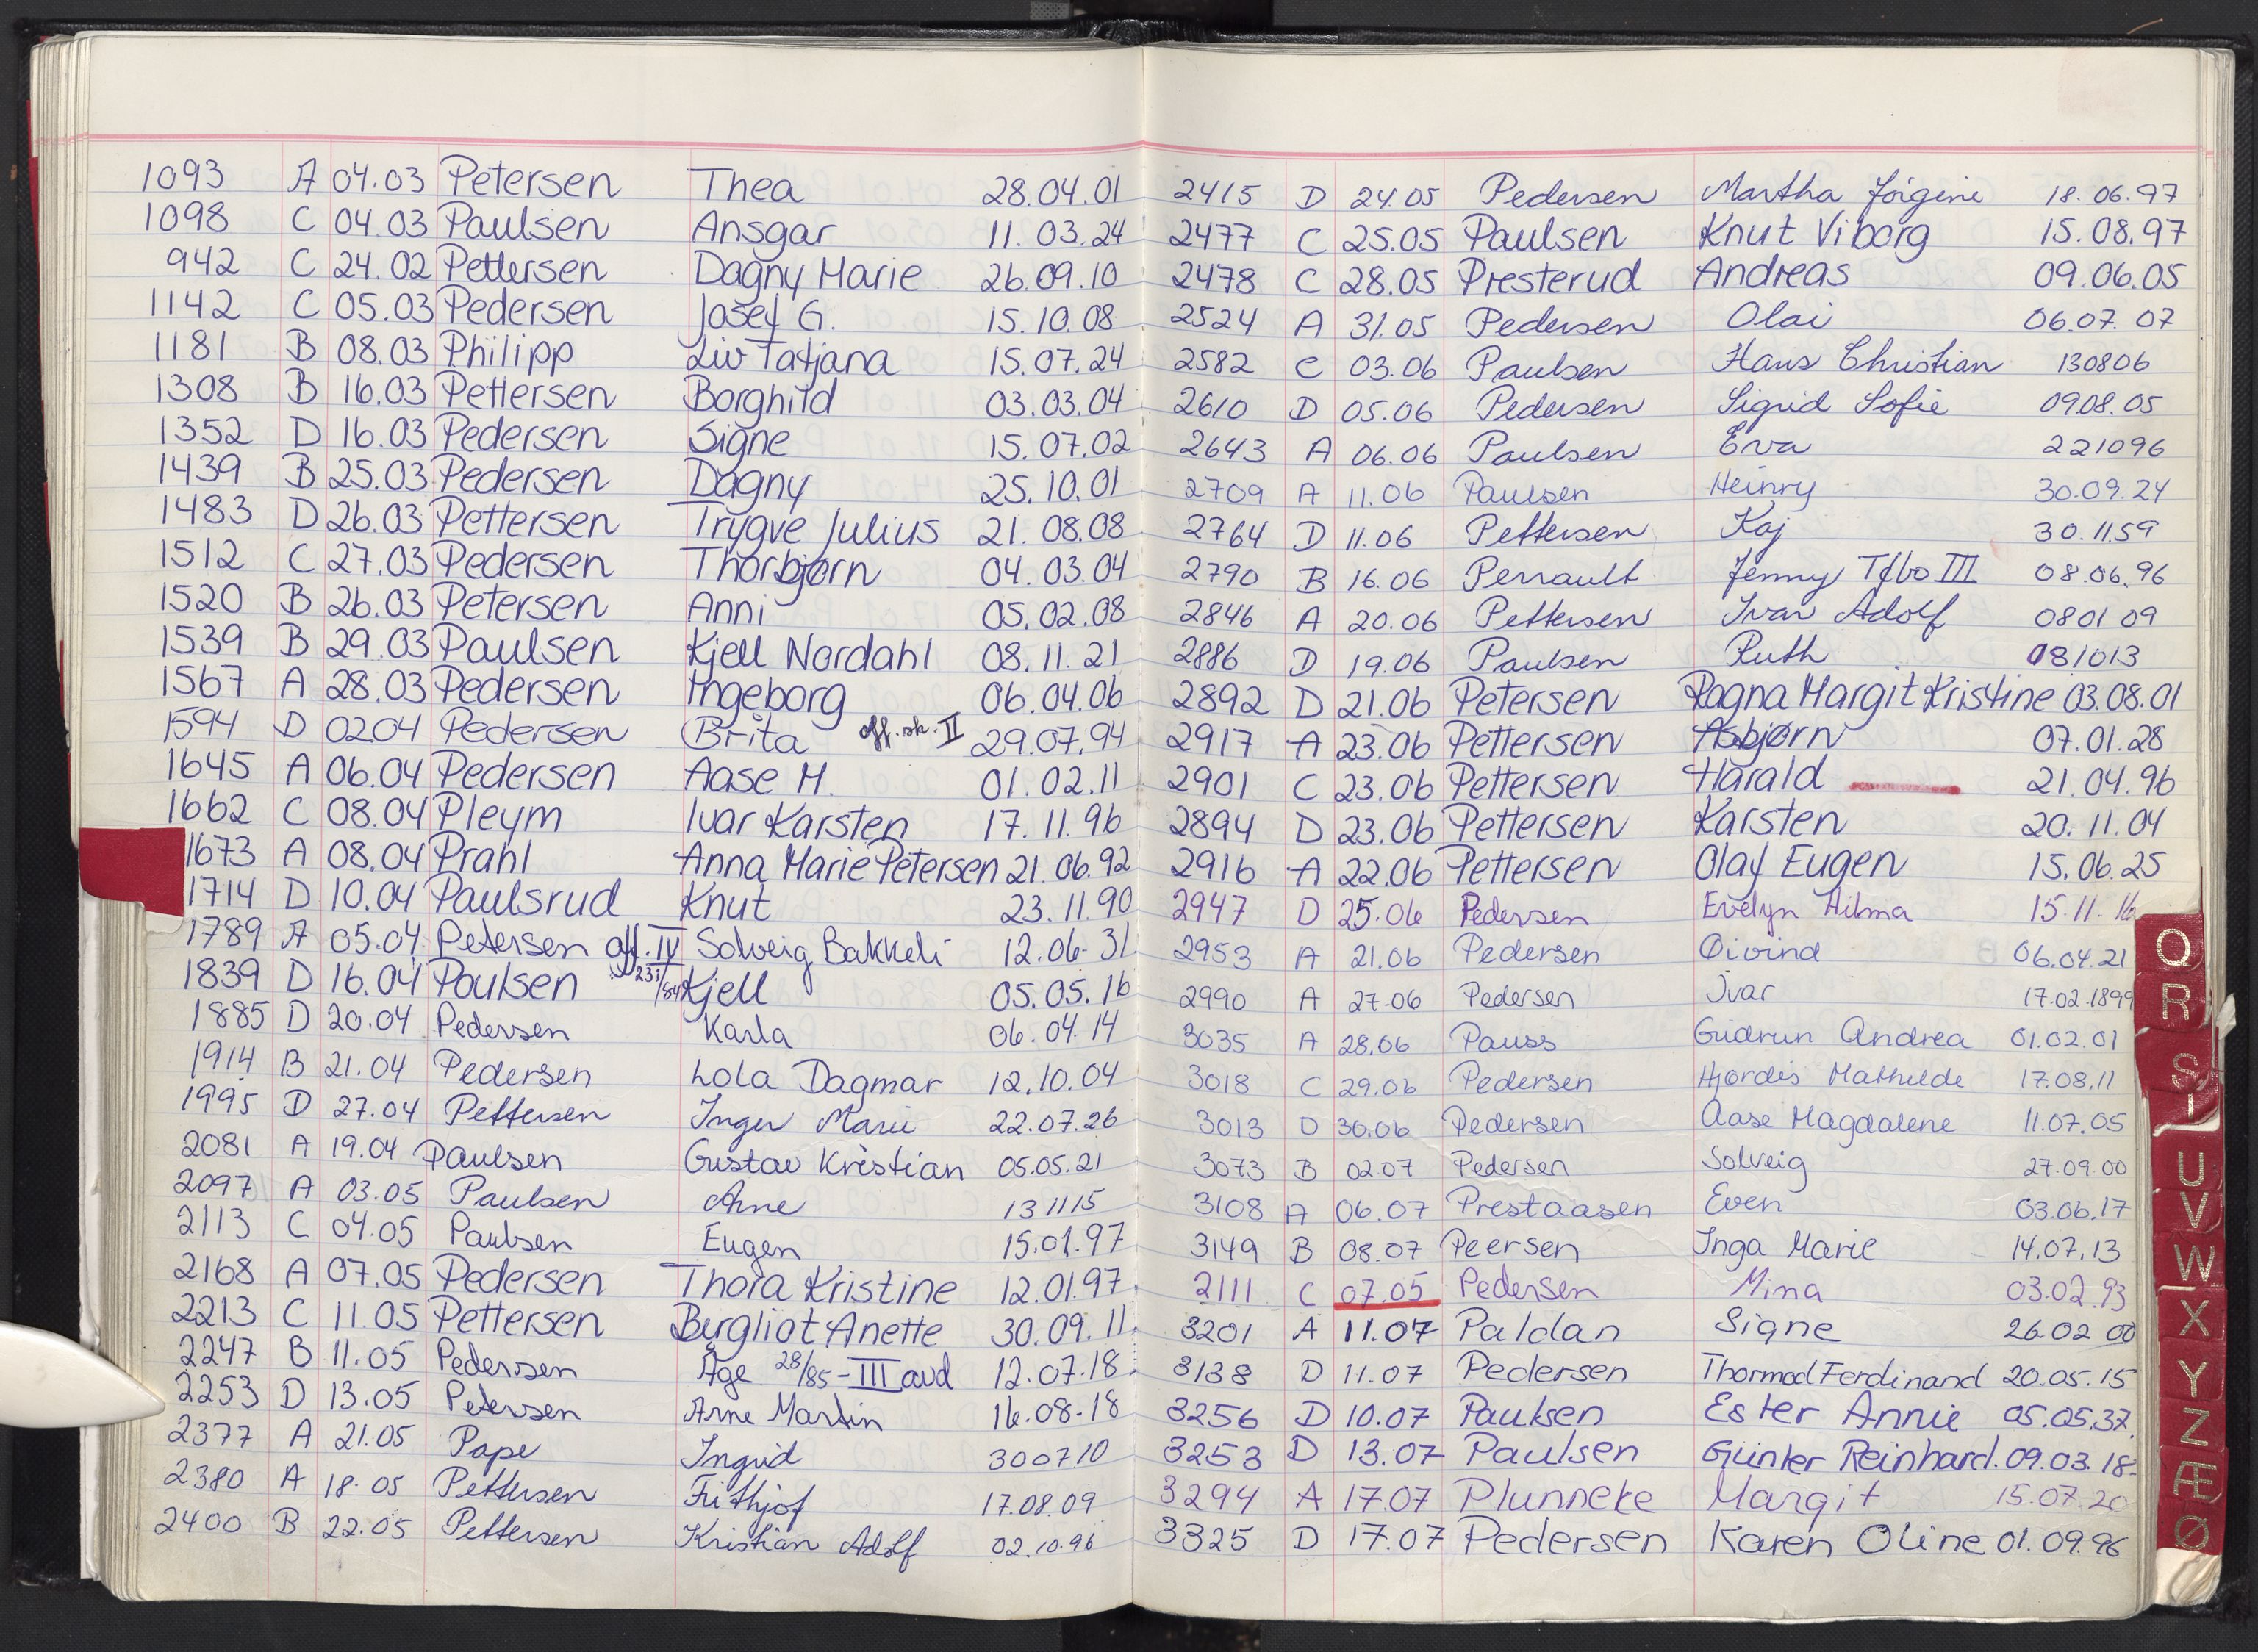 1093 A 04.03 Petersen Thea 28.04.01
1098 C 04.03 Paulsen Ansgar 11.03.24
942 C 24.02 Pettersen Dagny Marie 26.09.10
1142 C 05.03 Pedersen Josef G. 15.10.08
1181 B 08.03 Philipp Liv Tatjana 15.07.24
1308 B 16.03 Pettersen Borghild 03.03.04
1352 D 16.03 Pedersen Signe 15.07.02
1439 B 25.03 Pedersen Dagny 25.10.01
1483 D 26.03 Pettersen Trygve Julius 21.08.08
1512 C 27.03 Pedersen Thorbjørn 04.03.04
1520 B 26.03 Petersen Anni 05.02.08
1539 B 29.03 Paulsen Kjell Nordahl 08.11.21
1567 A 28.03 Pedersen Ingeborg 06.04.06
1594 D 02.04 Pedersen Brita off.sk. II 29.07.94
1645 A 06.04 Pedersen Aase M. 01.02.11
1662 C 08.04 Pleym Ivar Karsten 17.11.96
1673 A 08.04 Prahl Anna Marie Petersen 21.06.92
1714 D 10.04 Paulsrud Knut 23.11.90
1789 A 05.04 Petersen off. IV Solveig Bakkeli 12.06-31
1839 D 16.04 Paulsen 231/84 Kjell 05.05.16
1885 D 20.04 Pedersen Karla 06.04.14
1914 B 21.04 Pedersen Lola Dagmar 12.10.04
1995 D 27.04 Pettersen Inger Marie 22.07.26
2081 A 19.04 Paulsen Gustav Kristian 05.05.21
2097 A 03.05 Paulsen Arne 131115
2113 C 04.05 Paulsen Eugen 15.01.97
2168 A 07.05 Pedersen Thora Kristine 12.01.97
2213 C 11.05 Pettersen Bergliot Anette 30.09.11
2247 B 11.05 Pedersen Åge 28/85 - III avd 12.07.18
2253 D 13.05 Petersen Arne Martin 16.08-18
2377 A 21.05 Pape Ingrid 300710
2380 A 18.05 Pettersen Frithjof 17.08.09
2400 B 22.05 Pettersen Kristian Adolf 02.10.96
2415 D 24.05 Pedersen Martha Jørgine 18.06.97
2477 C 25.05 Paulsen Knut Viborg 15.08.97
2478 C 28.05 Presterud Andreas 09.06.05
2524 A 31.05 Pedersen Olai 06.07.07
2582 C 03.06 Paulsen Hans Christian 130806
2610 D 05.06 Pedersen Sigrid Sofie 09.08.05
2643 A 06.06 Paulsen Eva 221096
2709 A 11.06 Paulsen Heinry 30.09.24
2764 D 11.06 Pettersen Kaj 30.11.59
2790 B 16.06 Perrault Jenny Tfbo III 08.06.96
2846 A 20.06 Pettersen Ivar Adolf 0801 09
2886 D 19.06 Paulsen Ruth 081013
2892 D 21.06 Petersen Ragna Margit Kristine 03.08.01
2917 A 23.06 Pettersen Asbjørn 07.01.28
2901 C 23.06 Pettersen Harald 21.04.96
2894 D 23.06 Pettersen Karsten 20.11.04
2916 A 22.06 Pettersen Olaf Eugen 15.06.25
2947 D 25.06 Pedersen Evelyn Hilma 15.11.16
2953 A 21.06 Pedersen Øivind 06.04.21
2990 A 27.06 Pedersen Ivar 17.02.1899
3035 A 28.06 Pauss Gudrun Andrea 01.02.01
3018 C 29.06 Pedersen Hjørdis Mathilde 17.08.11
3013 D 30.06 Pedersen Aase Magdalene 11.07.05
3073 B 02.07 Pedersen Solveig 27.09.00
3108 A 06.07 Prestaasen Even 03.06.17
3149 B 08.07 Peersen Inga Marie 14.07.13
2111 C 07.05 Pedersen Mina 03.02.93
3201 A 11.07 Paldan Signe 26.02 00
3138 D 11.07 Pedersen Thormod Ferdinand 20.05.15
3256 D 10.07 Paulsen Ester Annie 05.05.37
3253 D 13.07 Paulsen Günter Reinhard. 09.03.18
3294 A 17.07 Plunneke Margit 15.07.20
3325 D 17.07 Pedersen Karen Oline 01.09.96
Q
R
S
U
V
W
X
Y
Z
Æ
Ø